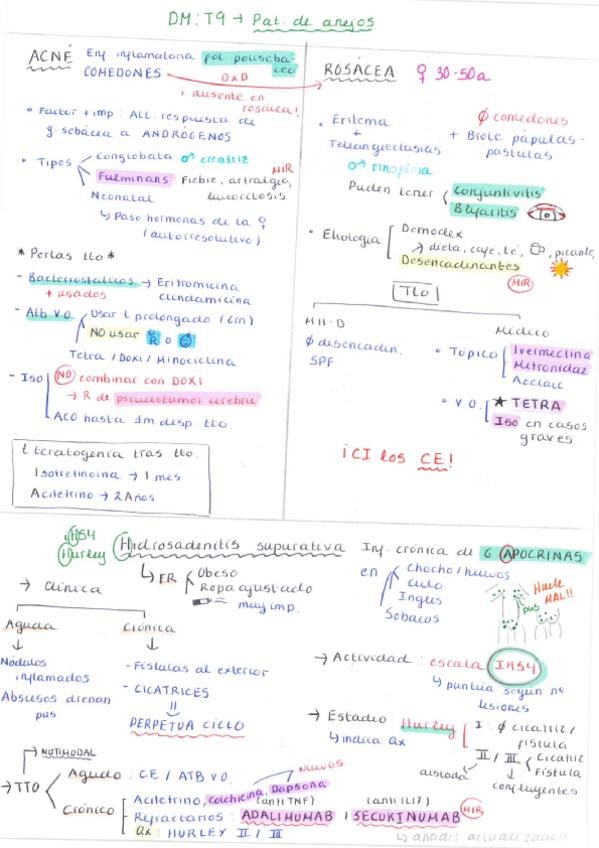 DM: T9 → Pat. de anejos
ACNÉ
Enf inflamatoria fol polisebaceo
COMEDONES
DxD
¡ ausente en rosácea!
• Factor + imp: Alt. respuesta de
g. sebácea a ANDRÓGENOS
• Tipos
Conglobata ♂ cicatriz
Fulminans: Fiebre, artralgia, leucocitosis
MIR
Neonatal
↳ Paso hormonas de la ♀
(autorresolutivo)
* Perlas tto *
- Bacteriostáticos → Eritromicina
+ usados clindamicina
- Atb V.O.
Usar t prolongado (6m)
NO usar o
Tetra / DOXI / Minociclina
- Iso
NO combinar con DOXI
→ R de pseudotumor cerebrii
ACO hasta 1m desp. tto
t teratogenia tras tto.
Isotretinoina → 1 mes
Acitretino → 2 Años
ROSÁCEA ♀ 30-50a
• Eritema
+
Telangiectasias
∅ comedones
+ Brote pápulas-
pústulas
♂ rinofima
Pueden tener
Conjuntivitis
Blefaritis
• Etiología
Demodex
→ dieta, café, té, , picante,
Desencadenantes
MIR
Tto
MH-D
∅ desencaden.
SPF
Médico
• Tópico
Ivermectina
Metronidaz
Azelaic
• V.O.
★ TETRA
Iso en casos
graves
¡CI los CE!
IHS4
Hurley
Hidrosadenitis supurativa Inf. crónica de G APOCRINAS
↳ FR
Obeso
Ropa ajustado
muy imp.
en
Chocho / huevos
culo
Ingles
Sobacos
pus
Huele
MAL!!
→ Clínica
Aguda
Nódulos
inflamados
Abscesos drenan
pus
Crónica
- Fístulas al exterior
- CICATRICES
=
PERPETUA CICLO
→ Actividad: escala IHS4
↳ puntua según nº
lesiones
→ Estadio: Hurley
↳ indica Qx
I: ∅ cicatriz /
fístula
II / III
Cicatriz
Fístula
aislada
confluyentes
MUTIMODAL
→ TTO
Agudo: CE / ATB V.O.
Crónico
Nuevos
Acitretino, colchicina, Dapsona
(anti TNF) (anti IL17)
Refractarios: ADALIMUMAB / SECUKINUMAB
MIR
Qx: HURLEY II / III
↳ añadir actualización